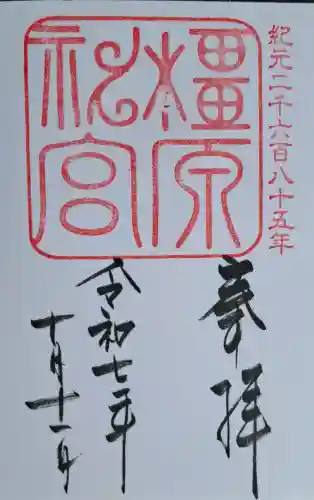 紀元二千六百八十五年
橿原
神宮
奉拝
令和七年
十月十一日